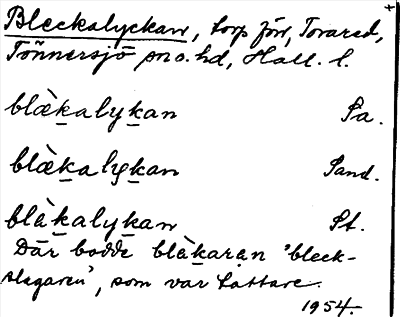 Bleckalyckan, torp förr, Tovared,
Tönnersjö sn o. hd, Hall. l.
blæ̀kalykan Pa.
blæ̀kalykan Sand.
blàkalykan St.
Där bodde blàkaran 'bleck-
slagaren', som var tattare.
1954.